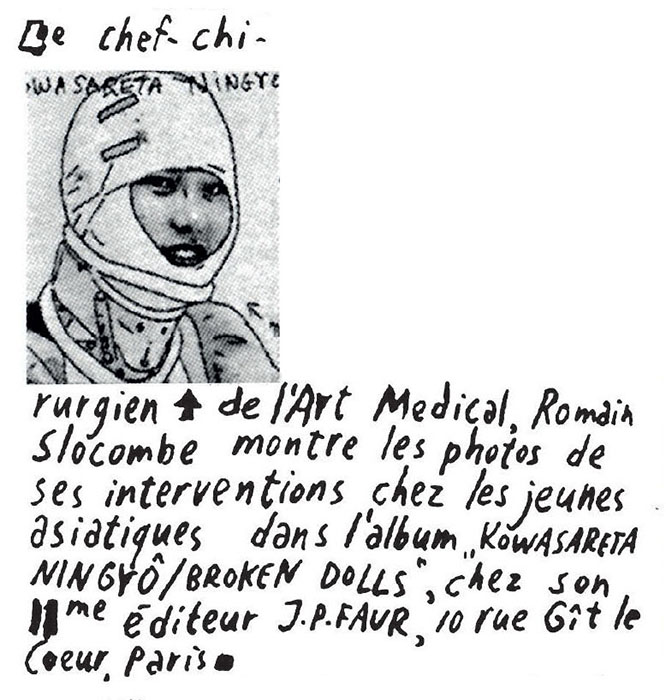 Le chef-chi-
OWASARETA NINGYO
rurgien ↑ de l'Art Medical, Romain
Slocombe montre les photos de
ses interventions chez les jeunes
asiatiques dans l'album „KOWASARETA
NINGYÔ/BROKEN DOLLS", chez son
11me éditeur J.P.FAUR, 10 rue Gît le
Coeur, Paris.